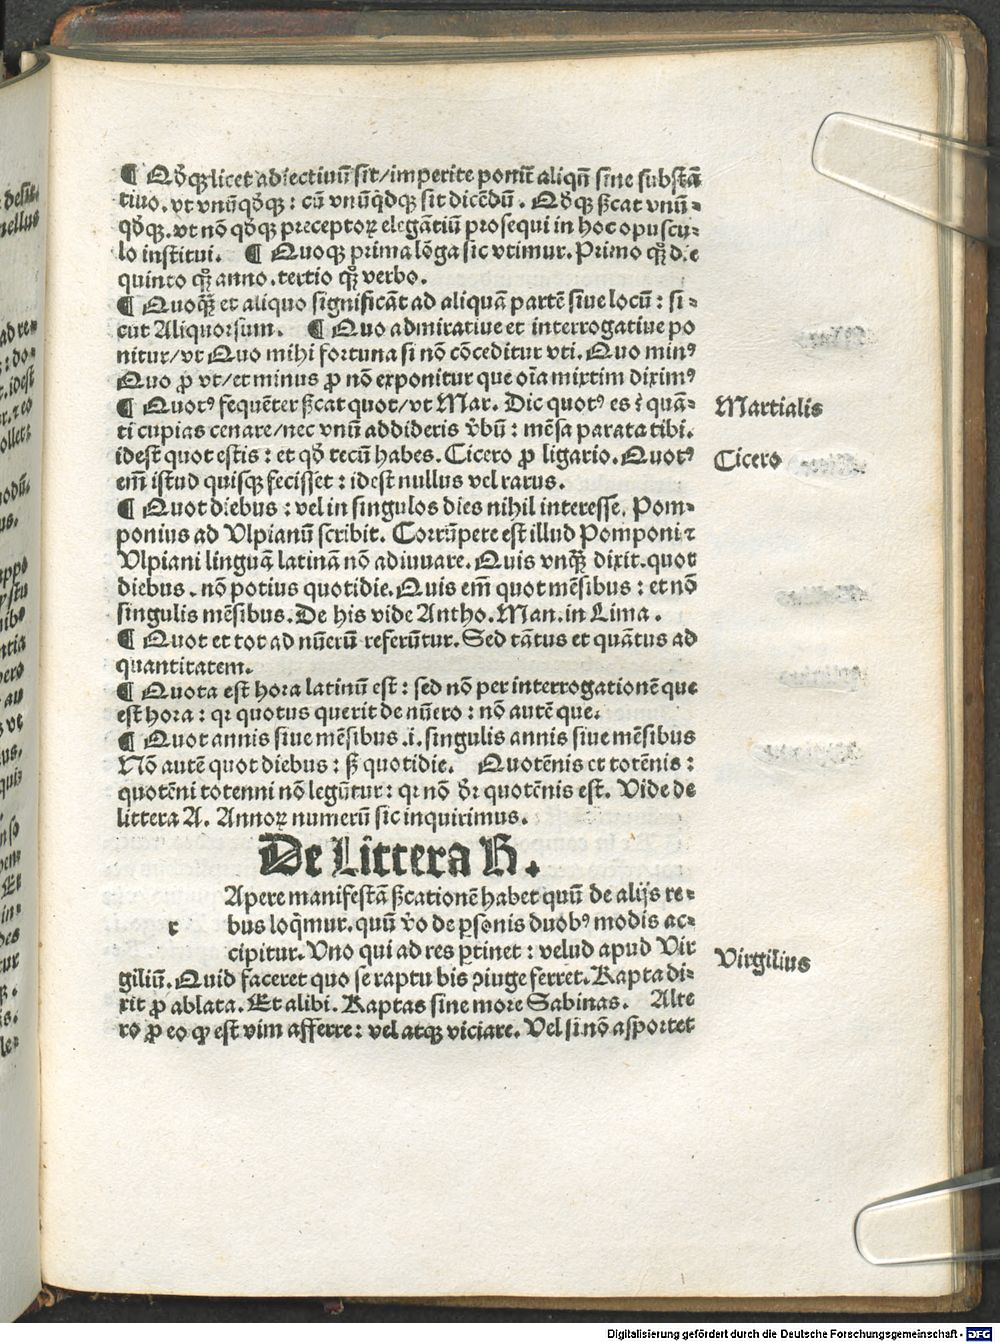 ¶ Qđꝙ licet adiectiuū sit/imperite ponit̄ aliqn̄ sine substā
tiuo. vt vnūqđꝙ: cū vnūq̇dꝙ sit dicēdū. Qđꝙ ſꝫcat vnū-
qđꝙ. vt nō qđꝙ preceptoꝝ elegātiū prosequi in hoc opuscu-
lo institui. ¶ Quoqꝫ prima lōga sic vtimur. Primo qꝫ die
quinto qꝫ anno. tertio qꝫ verbo.
¶ Quoqꝫ et aliquo significāt ad aliquā partē siue locū: si-
cut Aliquorsum. ¶ Quo admiratiue et interrogatiue po
nitur/vt Quo mihi fortuna si nō cōceditur vti. Quo minꝰ
Quo ꝓ vt/et minus ꝓ nō exponitur que oīa mixtim diximꝰ
¶ Quotꝰ fequēter ſꝫcat quot/vt Mar. Dic quotꝰ es ⁊ quā-
ti cupias cenare/nec vnū addideris v̄bū: mēsa parata tibi.
idest quot estis: et qđ tecū habes. Cicero ꝓ ligario. Quotꝰ
em̄ istud quisꝙ fecisset: idest nullus vel rarus.
¶ Quot diebus: vel in singulos dies nihil interesse. Pom-
ponius ad Vlpianū scribit. Corrūpere est illud Pomponi ⁊
Vlpiani linguā latinā nō adiuuare. Quis vnꝙ̄ dixit. quot
diebus. nō potius quotidie. Quis em̄ quot mēsibus: et nō
singulis mēsibus. De his vide Antho. Man. in Lima.
¶ Quot et tot ad nūerū referūtur. Sed tātus et quātus ad
quantitatem.
¶ Quota est hora latinū est: sed nō per interrogationē que
est hora: qꝛ quotus querit de nūero: nō autē que.
¶ Quot annis siue mēsibus .i. singulis annis siue mēsibus
Nō autē quot diebus: sꝫ quotidie. Quotēnis et totēnis:
quotēni totenni nō legūtur: qꝛ nō dꝛ quotēnis est. Vide de
littera A. Annoꝝ numerū sic inquirimus.
De Littera R.
Apere manifestā ſꝫcationē habet quū de alijs re-
r bus loq̇mur. quū v̄o de ꝑsonis duobꝰ modis ac-
cipitur. Vno qui ad res ꝑtinet: velud apud Vir
giliū. Quid faceret quo se raptu bis ꝯiuge ferret. Rapta di-
xit ꝓ ablata. Et alibi. Raptas sine more Sabinas. Alte
ro ꝓ eo qꝫ est vim afferre: vel atꝙ viciare. Vel si nō asportet
Martialis
Cicero
Virgilius
Digitalisierung gefördert durch die Deutsche Forschungsgemeinschaft - DFG